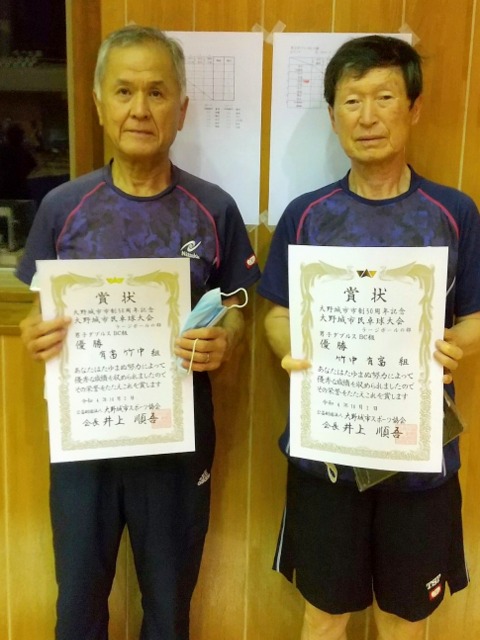 賞状
大野城市市制50周年記念
大野城市民卓球大会
ラージボールの部
男子ダブルスBC組
優勝
有富 竹中 組
あなたはたゆまぬ努力によって
優秀な成績を収められましたので
その栄誉をたたえこれを賞します
令和4年10月1日
公益財団法人大野城市スポーツ協会
会長 井上 順吾
賞状
大野城市市制50周年記念
大野城市民卓球大会
ラージボールの部
男子ダブルスBC組
優勝
竹中 有富 組
あなたはたゆまぬ努力によって
優秀な成績を収められましたので
その栄誉をたたえこれを賞します
令和4年10月1日
公益財団法人大野城市スポーツ協会
会長 井上 順吾
Nittaku
TSP